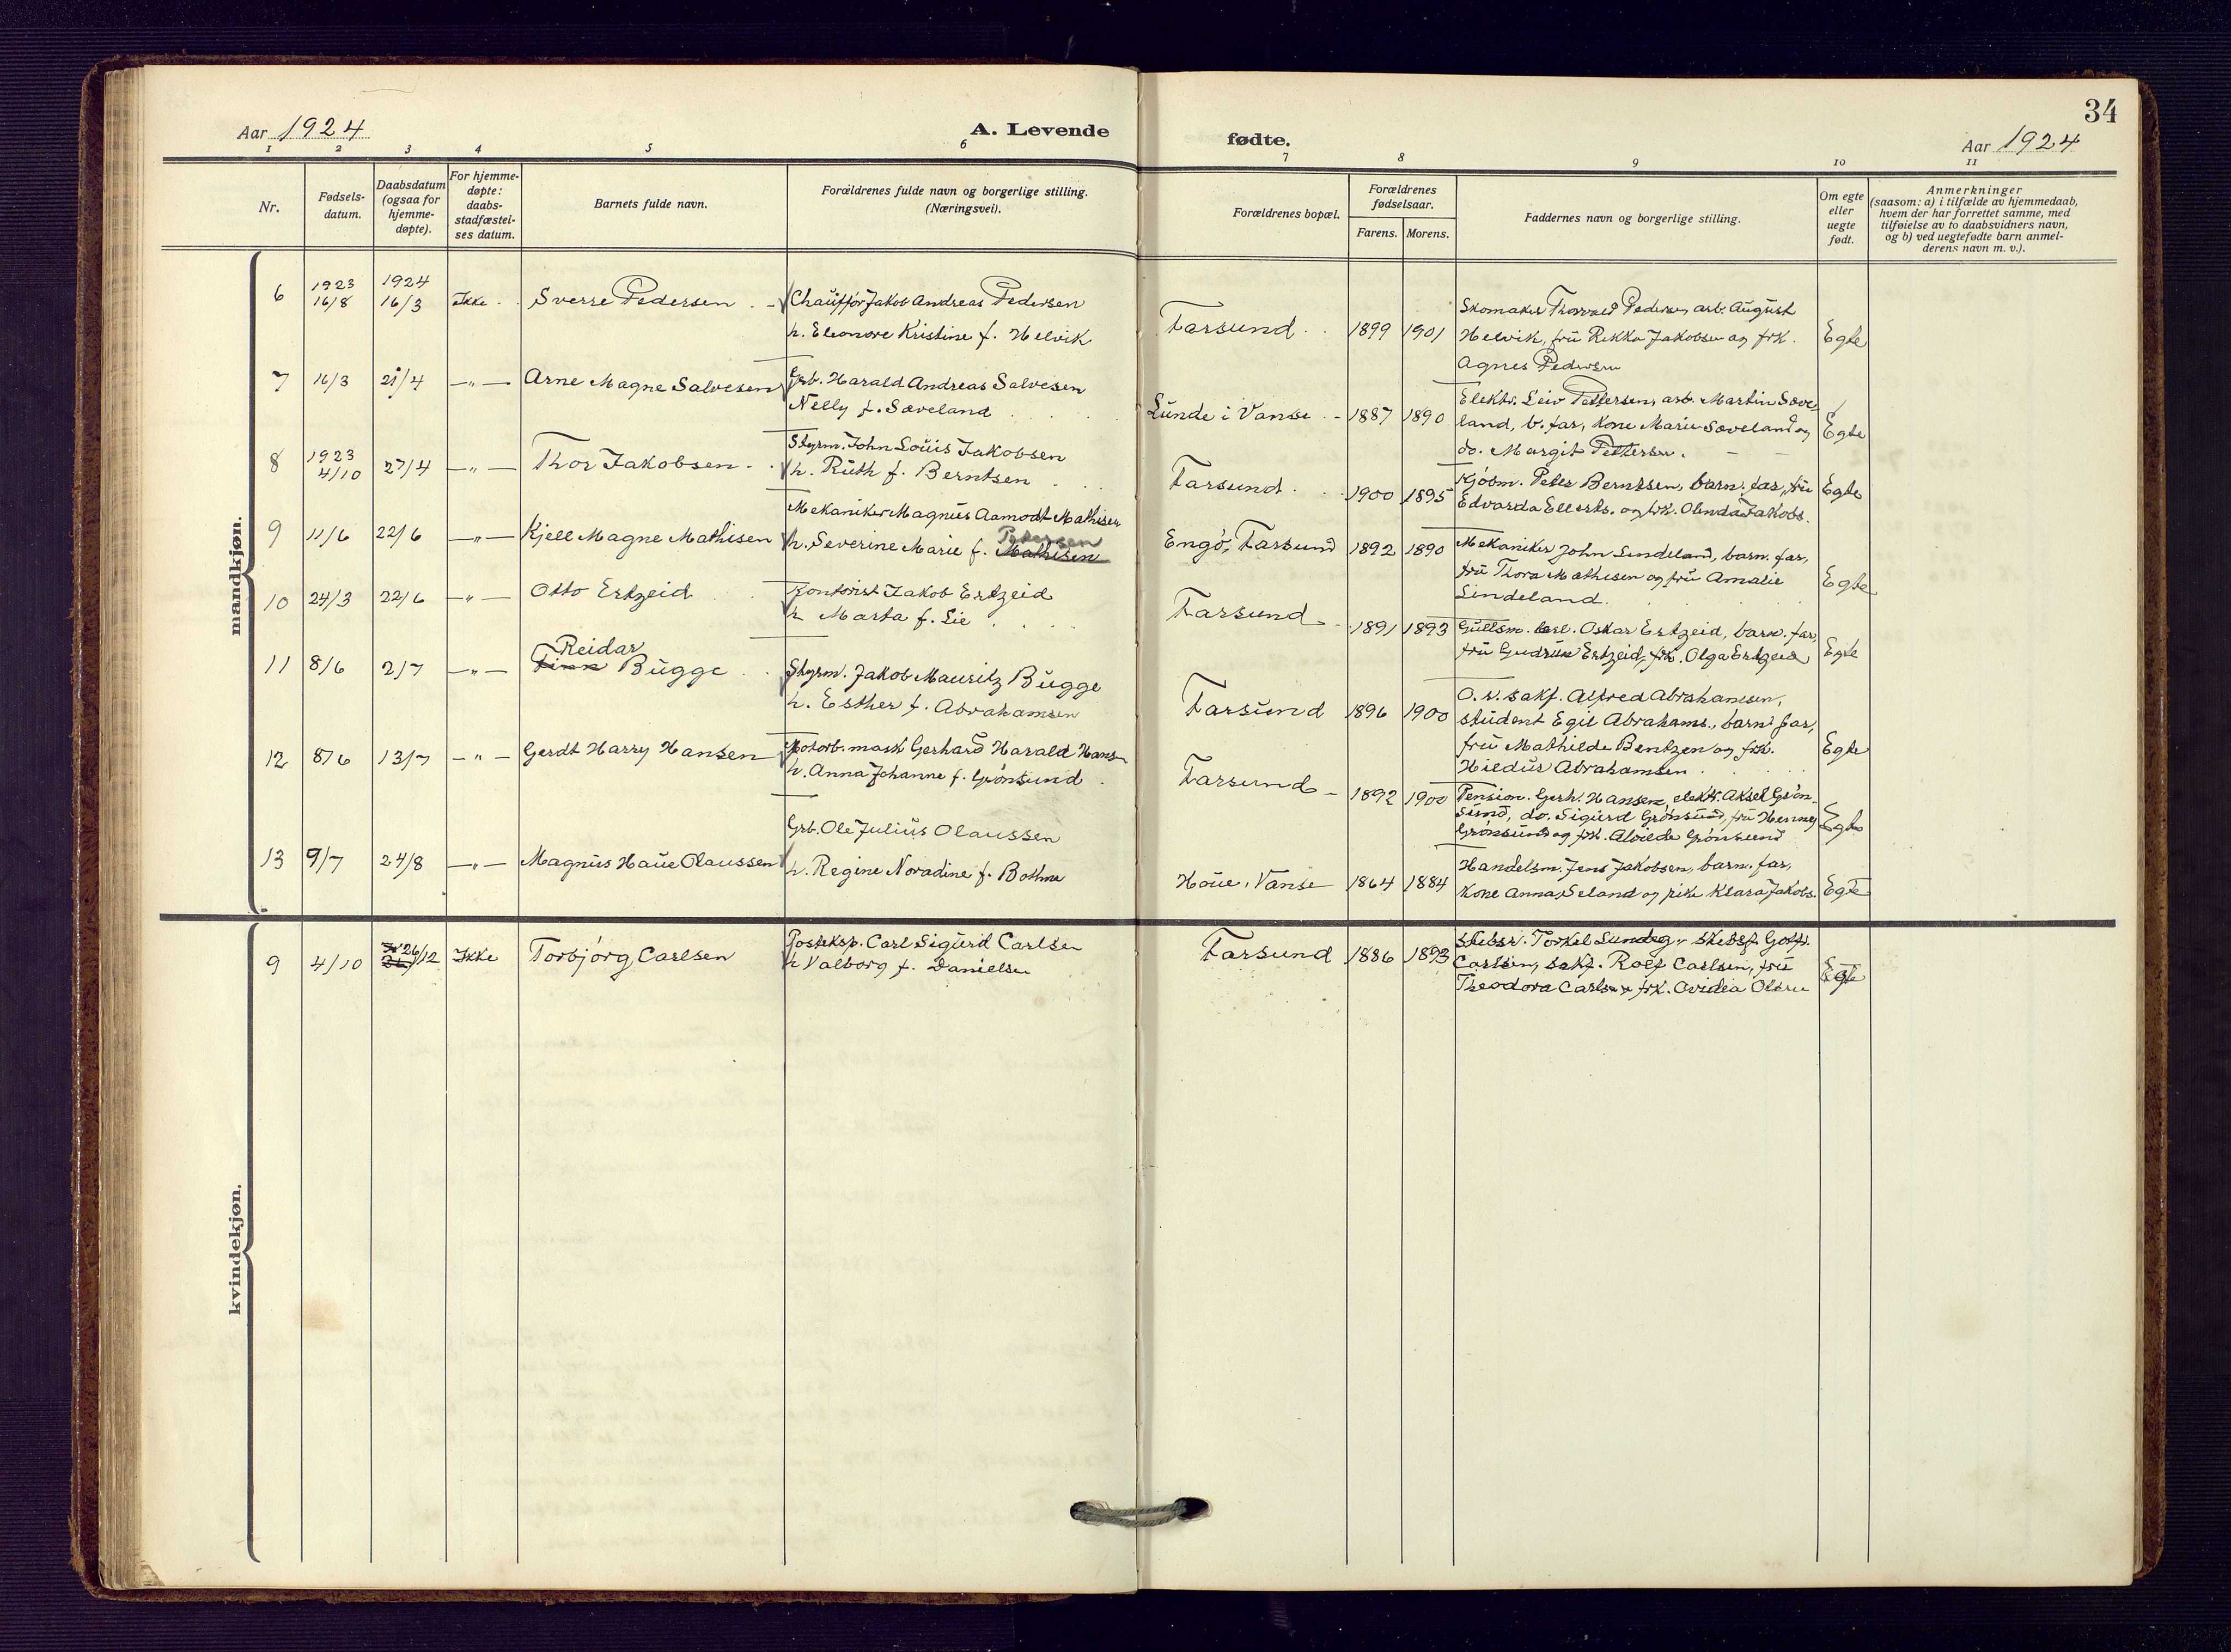 34
Aar 1924
A. Levende
fødte.
Aar 1924
1 2 3 4 5 6 7 8 9 10 11
Nr.
Fødsels-
datum.
Daabsdatum
(ogsaa for
hjemme-
døpte).
For hjemme-
døpte:
daabs-
stadfæstel-
ses datum.
Barnets fulde navn.
Forældrenes fulde navn og borgerlige stilling.
(Næringsvei).
Forældrenes bopæl.
Forældrenes
fødselsaar.
Farens. Morens.
Faddernes navn og borgerlige stilling.
Om egte
eller
uegte
født.
Anmerkninger
(saasom: a) i tilfælde av hjemmedaab,
hvem der har forrettet samme, med
tilføielse av to daabsvidners navn,
og b) ved uegtefødte barn anmel-
derens navn m. v.).
mandkjøn.
6
1923
16/8
1924
16/3
Ikke
Sverre Pedersen
Chauffør Jakob Andreas Pedersen
h. Eleonore Kristine f. Helvik
Farsund
1899 1901
Skomaker Thorvald Pedersen, arb. August
Helvik, fru Rikka Jakobsen og frk.
Agnes Pedersen
Egte
7
16/3
21/4
—"—
Arne Magne Salvesen
Grb. Harald Andreas Salvesen
Nelly f. Sæveland
Lunde i Vanse
1887 1890
Elektr. Leiv Pettersen, arb. Martin Sæve-
land, b. far, kone Marie Sæveland og
do. Margit Pettersen.
Egte
8
1923
4/10
27/4
—"—
Thor Jakobsen
Styrm. John Louis Jakobsen
h. Ruth f. Berntsen
Farsund
1900 1895
Kjøbm. Peter Berntsen, barn. far, fru
Edvarda Ellerts. og frk. Olinda Jakobs.
Egte
9
11/6
22/6
—"—
Kjell Magne Mathisen
Mekaniker Magnus Aamodt Mathisen
h. Severine Marie f. Mathisen
Petersen
Engø, Farsund
1892 1890
Mekaniker John Lindeland, barn. far,
fru Thora Mathisen og fru Amalie
Lindeland.
Egte
10
24/3
22/6
—"—
Otto Ertzeid
Kontorist Jakob Ertzeid
h Marta f. Lie
Farsund
1891 1893
Gullsm. Oskar Ertzeid, barn. far,
fru Gudrun Ertzeid, frk. Olga Ertzeid
Egte
11
8/6
2/7
—"—
Reidar
Finn Bugge
Styrm. Jakob Mauritz Bugge
h. Esther f. Abrahamsen
Farsund
1896 1900
O.r. sakf. Alfred Abrahamsen,
student Egil Abrahams., barn. far,
fru Mathilde Bentzen og frk.
Hildur Abrahamsen
Egte
12
8/6
13/7
—"—
Gerdt Harry Hansen
Motorb. mask Gerhard Harald Hansen
h. Anna Johanne f. Grønsund
Farsund
1892 1900
Pension. Gerh. Hansen, elektr. Aksel Grøn-
sund, do. Sigurd Grønsund, fru Henny
Grønsund og frk. Alvilde Grønsund
Egte
13
9/7
24/8
—"—
Magnus Haue Olaussen
Grb. Ole Julius Olaussen
h. Regine Noradine f. Bothne
Haue, Vanse
1864 1884
Handelsm. Jens Jakobsen, barn. far,
kone Anna Seland og pike Klara Jakobs.
Egte
kvindekjøn.
9
4/10
26/12
Ikke
Torbjørg Carlsen
Posteksp. Carl Sigurd Carlsen
h Valborg f. Danielsen
Farsund
1886 1893
Skibsr. Torkel Lundeg., skibsf. Golf.
Carlsen, sakf. Rolf Carlsen, fru
Theodora Carlsen frk. Ovidia Olsen
Egte